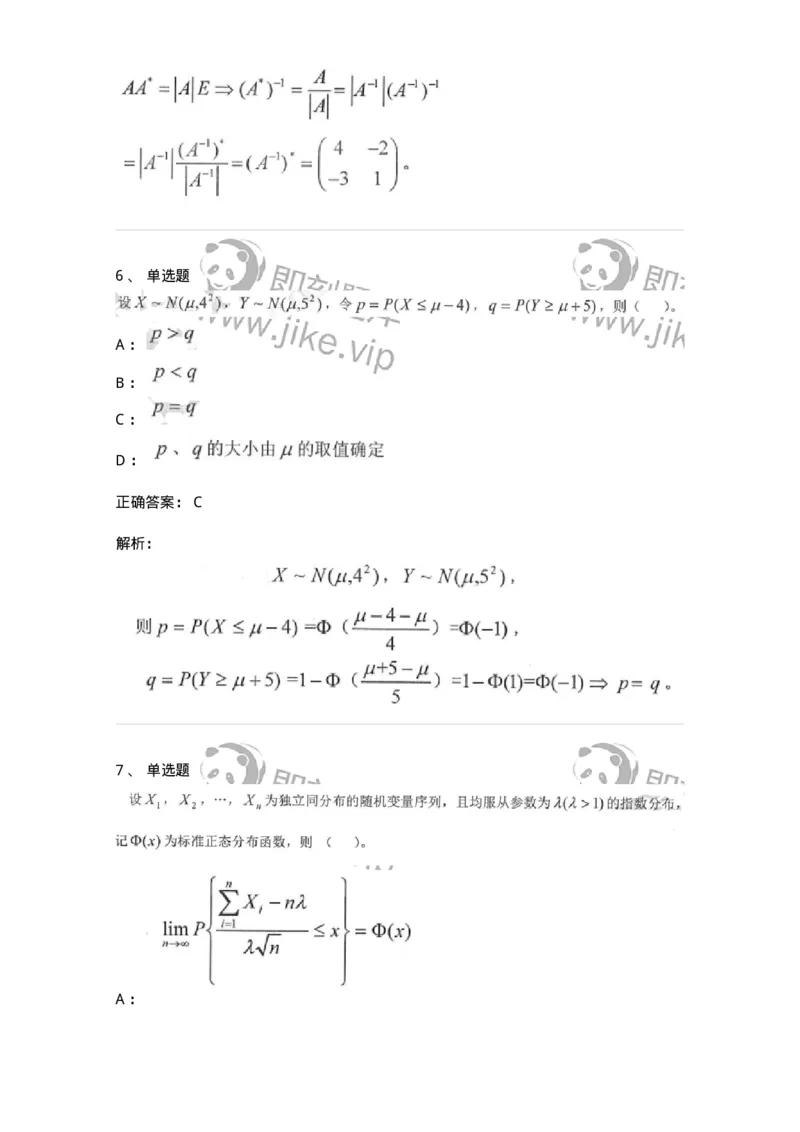 AA* = |A|E ⇒ (A*)⁻¹ = A/|A| = |A⁻¹|(A⁻¹)⁻¹
= |A⁻¹| (A⁻¹)*/|A⁻¹| = (A⁻¹)* = ( 4 −2
−3 1 ) 。
6 、 单选题
设 X ~ N(μ,4²)，Y ~ N(μ,5²)，令 p = P(X ≤ μ−4)，q = P(Y ≥ μ+5)，则（ ）。
www.jike.vip
www.jik
A： p > q
B： p < q
C： p = q
D： p、q 的大小由 μ 的取值确定
正确答案： C
解析：
X ~ N(μ,4²)，Y ~ N(μ,5²)，
则 p = P(X ≤ μ−4) =Φ（(μ−4−μ)/4）=Φ(−1)，
q = P(Y ≥ μ+5) =1−Φ（(μ+5−μ)/5）=1−Φ(1)=Φ(−1) ⇒ p= q 。
7 、 单选题
设 X₁，X₂，⋯，Xₙ 为独立同分布的随机变量序列，且均服从参数为 λ(λ＞1) 的指数分布，
记 Φ(x) 为标准正态分布函数，则 （ ）。
lim n→∞ P{ (∑ i=1 n Xᵢ − nλ)/(λ√n) ≤ x } = Φ(x)
A：